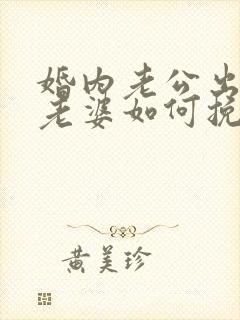 婚内老公出
老婆如何挽
黄美珍